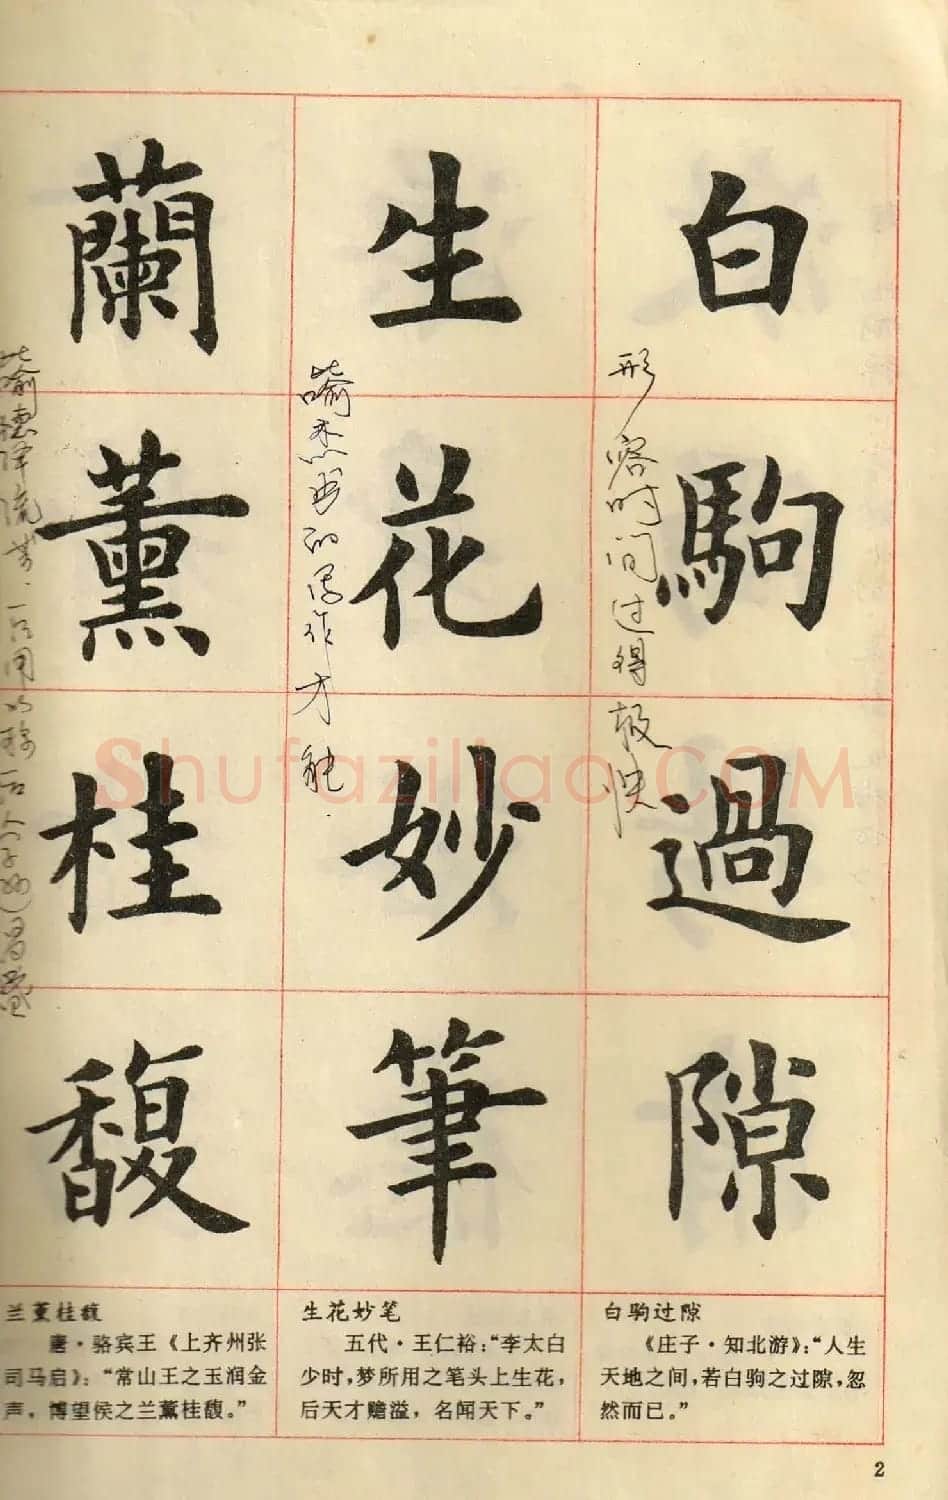 白駒過隙
形容时间过得极快
生花妙筆
喻杰出的写作才能
蘭薰桂馥
喻德泽流芳.
白驹过隙
《庄子·知北游》:“人生
天地之间,若白驹之过隙,忽
然而已。”
生花妙笔
五代·王仁裕:“李太白
少时,梦所用之笔头上生花,
后天才赡溢,名闻天下。”
兰薰桂馥
唐·骆宾王《上齐州张
司马启》:“常山王之玉润金
声,博望侯之兰薰桂馥。”
2
Shufaziliao.COM